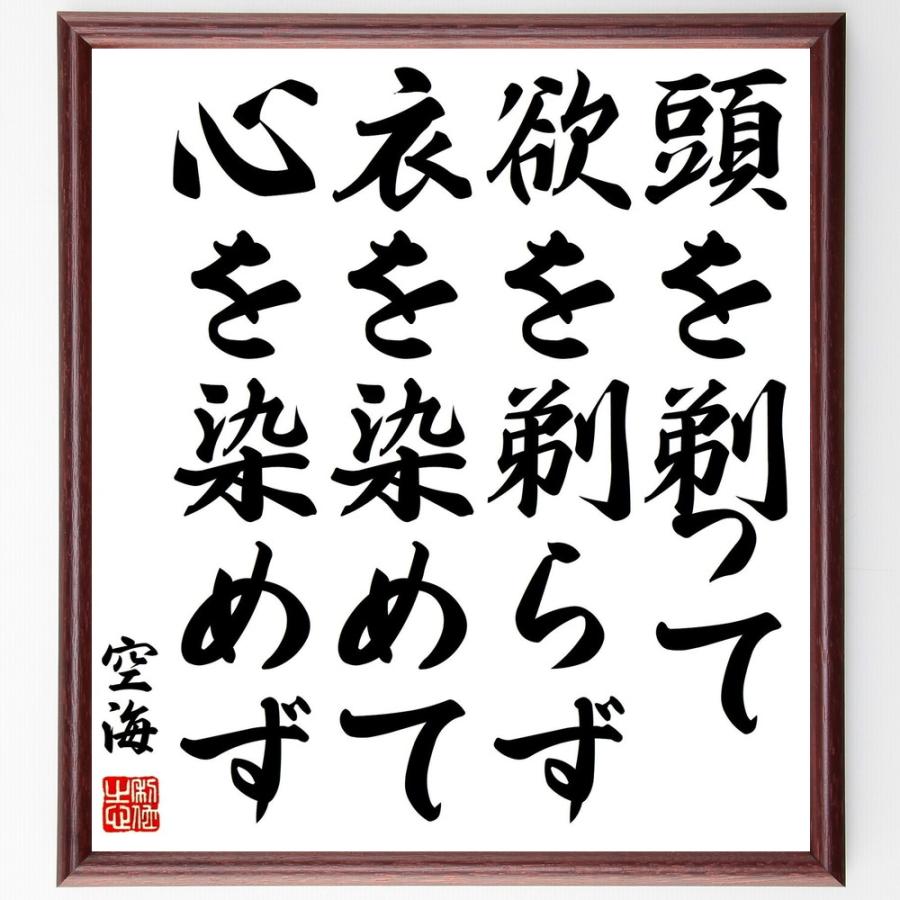 頭を剃って
欲を剃らず
衣を染めて
心を染めず
空海